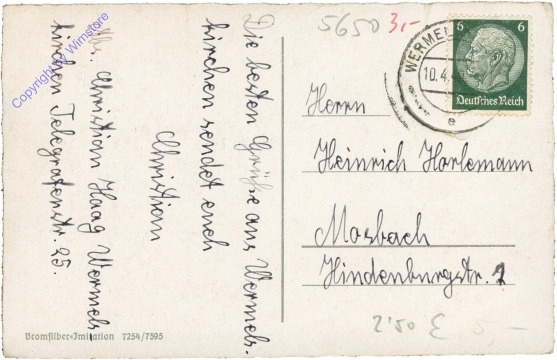 Die besten Grüße aus Wermels-
kirchen sendet euch
Christian
Abs. Christian Haag Wermels
kirchen Telegrafenstr. 25.
Bromsilber=Imitation 7254/7595
Copyright by Wimstore
5650 3,-
WERMEL
10.4.
e
6 6
Deutsches Reich
Herrn
Heinrich Harlemann
Mosbach
Hindenburgstr. 2
2'50 £ 5,-